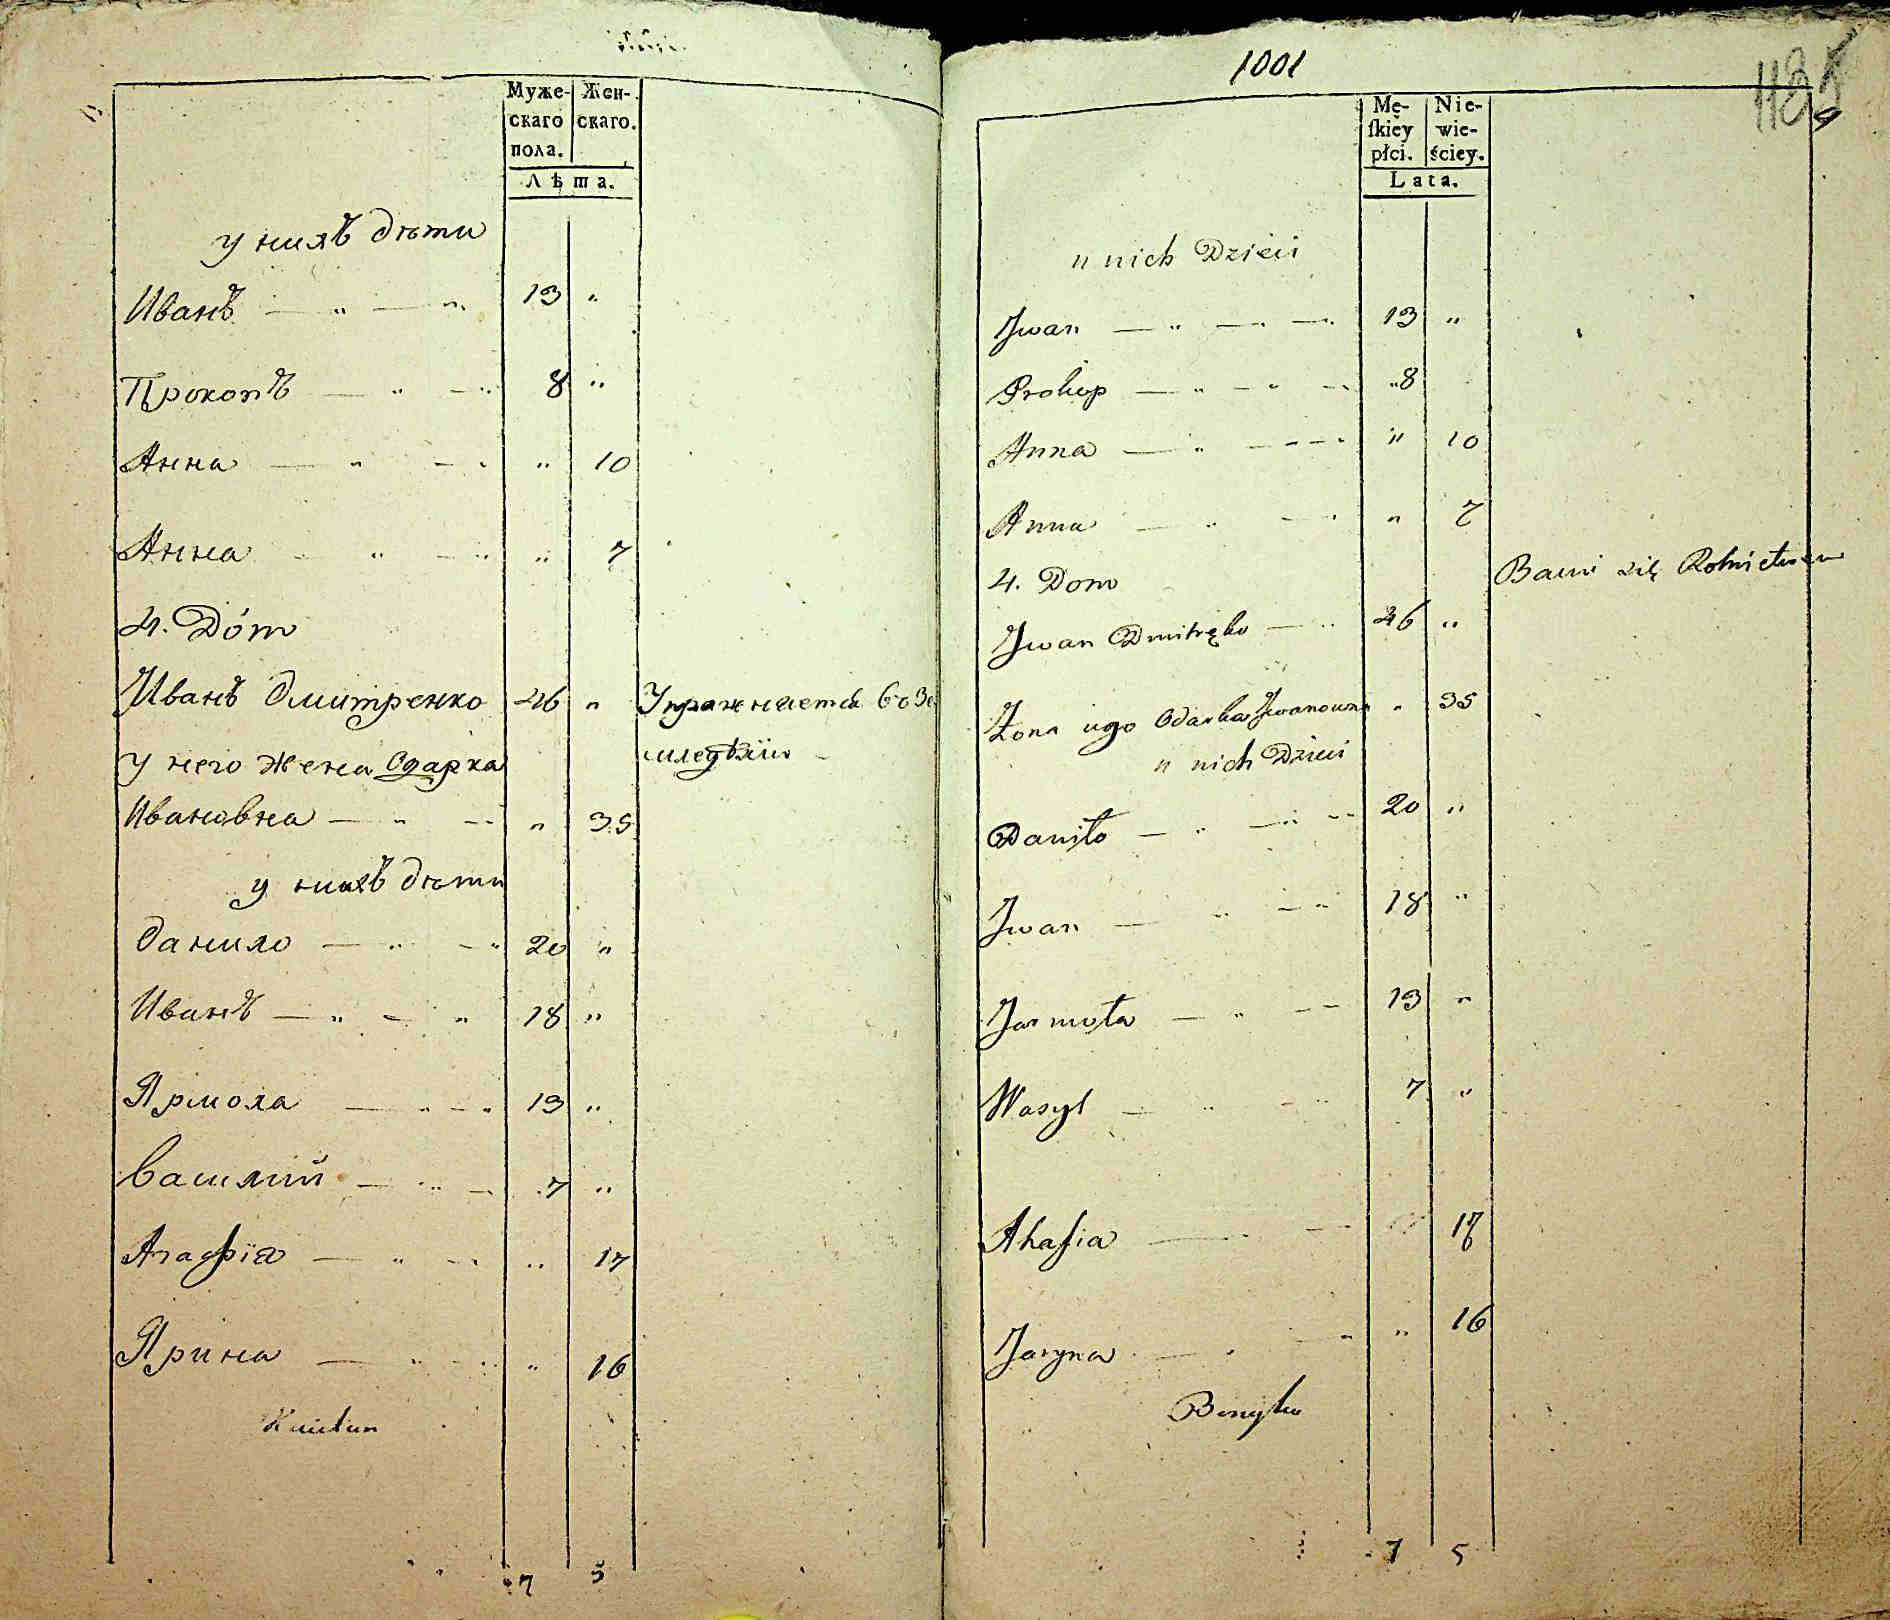 Муже-
скаго
пола.
Жен-
скаго.
Лѣта.
у нихъ дѣти
Иванъ — „ — „ 13 „
Прокопъ — „ — „ 8 „
Анна — „ — „ „ 10
Анна — „ — „ „ 7
4. Dóm
Иванъ Дмитренко 46 „ Упражняется въ Зе
у него жена Одарка мледѣліи
Ивановна — „ — „ 35
у нихъ дѣти
Данило — „ — „ 20 „
Иванъ — „ — „ 18 „
Ярмола — „ — „ 13 „
Василій — „ — 7 „
Агафія — „ — „ 17
Ярина — „ — „ 16
7 5
1001
Mę-
ſkiéy
płci.
Nie-
wie-
ściey.
Lata.
u nich Dzieci
Jwan — „ — „ — 13 „
Prokop — „ — „ — „8
Anna — „ — — — „ 10
Anna — „ — „ „ 7
4. Dom Bawi się Rolnictwem
Jwan Dmitręko — „ 46 „
Żona iego Odarka Jwanowna „ 35
u nich Dzieci
Daniło — „ — „ — 20 „
Jwan — „ — „ 18 „
Jarmoła — „ — — 13 „
Wasyl — „ — „ 7 „
Ahafia — „ — 17
Jaryna — „ — „ „ 16
7 5